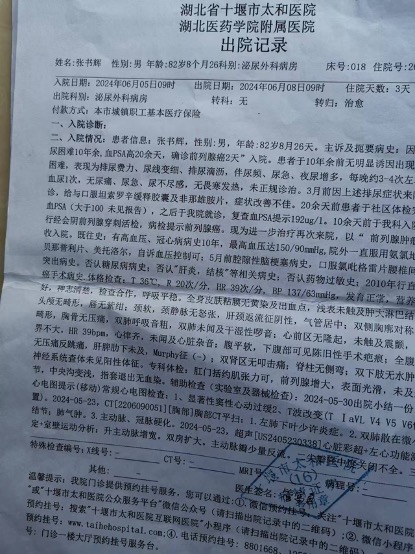 湖北省十堰市太和医院
湖北医药学院附属医院
出院记录
姓名:张书辉 性别:男 年龄:82岁8个月26科别:泌尿外科病房 床号:018 住院号:26
入院日期:2024年06月05日09时 出院日期:2024年06月08日09时 住院天数:3天
出院科别:泌尿外科病房 转科:无 转归:治愈
付款方式:本市城镇职工基本医疗保险
一、入院诊断:
二、入院情况:患者信息:张书辉,性别:男,年龄:82岁8月26天。主诉及扼要病史:因
尿困难10余年,血PSA高20余天,确诊前列腺癌2天"入院。患者于10年余前无明显诱因出现
困难,表现为排尿费力、尿线变细、排尿滴沥,伴尿频、尿急、夜尿增多,每晚约3-4次左
血尿1次,无尿痛、尿急、尿不尽感,无畏寒发热,未正规诊治。3月前因上述排尿症状来
诊,给与口服坦索罗辛缓释胶囊及非那雄胺片,症状改善不佳。20余天前患者于社区体检
血PSA(大于100 未见报告),之后于我院就诊,复查血PSA提示192ug/l。10余天前于我科入
行经会阴前列腺穿刺活检,病检提示前列腺癌。现为进一步治疗再次来院,以"前列腺肿
收入院,既往史:有高血压、冠心病病史10年,最高血压达150/90mmHg,院外一直服用
贝那普利片、美托洛尔,自诉血压控制可;5月前腔隙性脑梗塞病史,口服氯吡格雷片
突出病史。否认糖尿病病史;否认"肝炎、结核"等相关病史;否认药物过敏史;2010年行直
癌手术病史 体格检查:T 36℃,R 20次/分,HR 39次/分,BP 137/63mmHg,发育正常,营养
好,神志清楚,检查合作,呼吸平稳。全身皮肤粘膜无黄染及出血点,浅表未触及肿大淋巴结
头颅无畸形,唇无紫绀;颈软,颈静脉无怒张,肝颈返流征阴性,气管居中;双侧胸廓对称
畸形,胸骨无压痛,双肺呼吸音粗,双肺未闻及干湿性啰音;心前区无隆起,未触及震颤,
界不大,HR 39bpm,心律齐,未闻及心脏杂音;腹平软,下腹部可见陈旧性手术疤痕;全腹
无压痛反跳痛,肝脾肋下未及,Murphy征(-);双肾区无叩击痛;脊柱无侧弯;双下肢无水肿
神经系统查体未见阳性体征。专科体检:肛门括约肌张力可,前列腺增大,表面光滑,未及
节,中央沟变浅,指套退出无血染。辅助检查(实验室及器械检查):2024-05-30出院小结一份
心电图提示(移动)常规心电图检查:1、显著性窦性心动过缓2、T波改变(T I aVL V4 V5 V6
置)。2024-05-23,CT[2206090051][胸部]胸部CT平扫:1.左肺下叶少许炎症。2.双肺散在微小
结节;肺气肿。3.主动脉、冠脉硬化。2024-05-22,超声[US2405230338]心脏彩超+左心功能测
定+室壁运动分析:升主动脉增宽,双房扩大,主动脉瓣少量反流,二尖瓣
特殊检查编号:X线号: CT号: MRI号:
其他: 医生签名:
温馨提示:我院门诊提供预约挂号服务,您可以通过:①.微信预约挂号:关注"十堰市太和医
"或"十堰市太和医院公众服务平台"微信公众号(请扫描出院记录中的二维码);②.微信小
预约挂号:搜索"十堰市太和医院互联网医院"小程序(请扫描出院记录中的二维码)
预约挂号:www.taihehospital.com;④.电话预约挂号:8801668、
号:门诊一楼大厅预约挂号服务台。